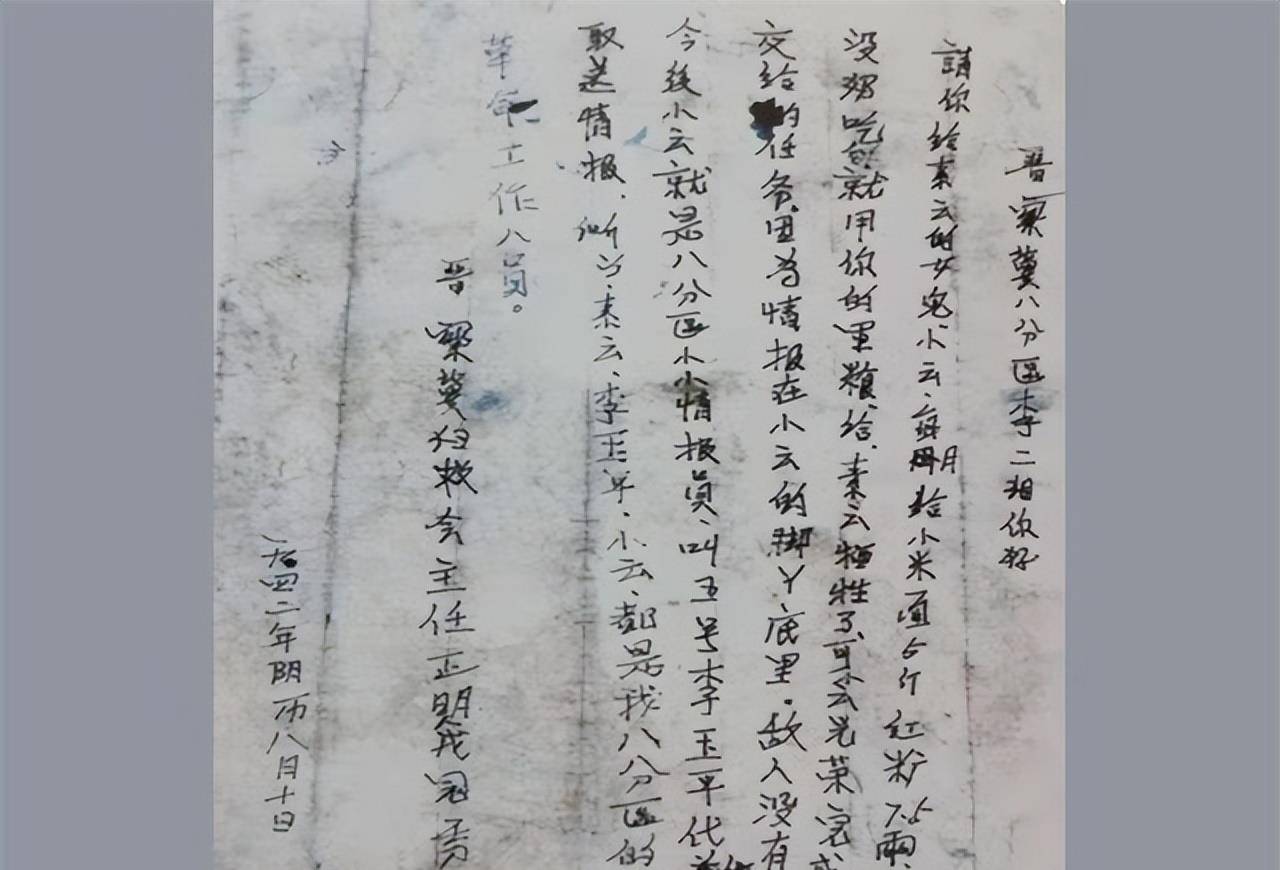 晋察冀八分区李二相你好
請你给素云的女児小云、每月给小米面5斤红粉7.5两、
没奶吃就用你的里粮给、素云牺牲了可小云光荣完成
交给的任务因为情报在小云的脚丫底里。敌人没有
今後小云就是八分区小小情报員、叫五号李玉平代
取送情报、所以、素云、李玉平、小云、都是我八分区的
革命工作人員。
晋察冀妇救会主任
一九四二年阴历八月十日